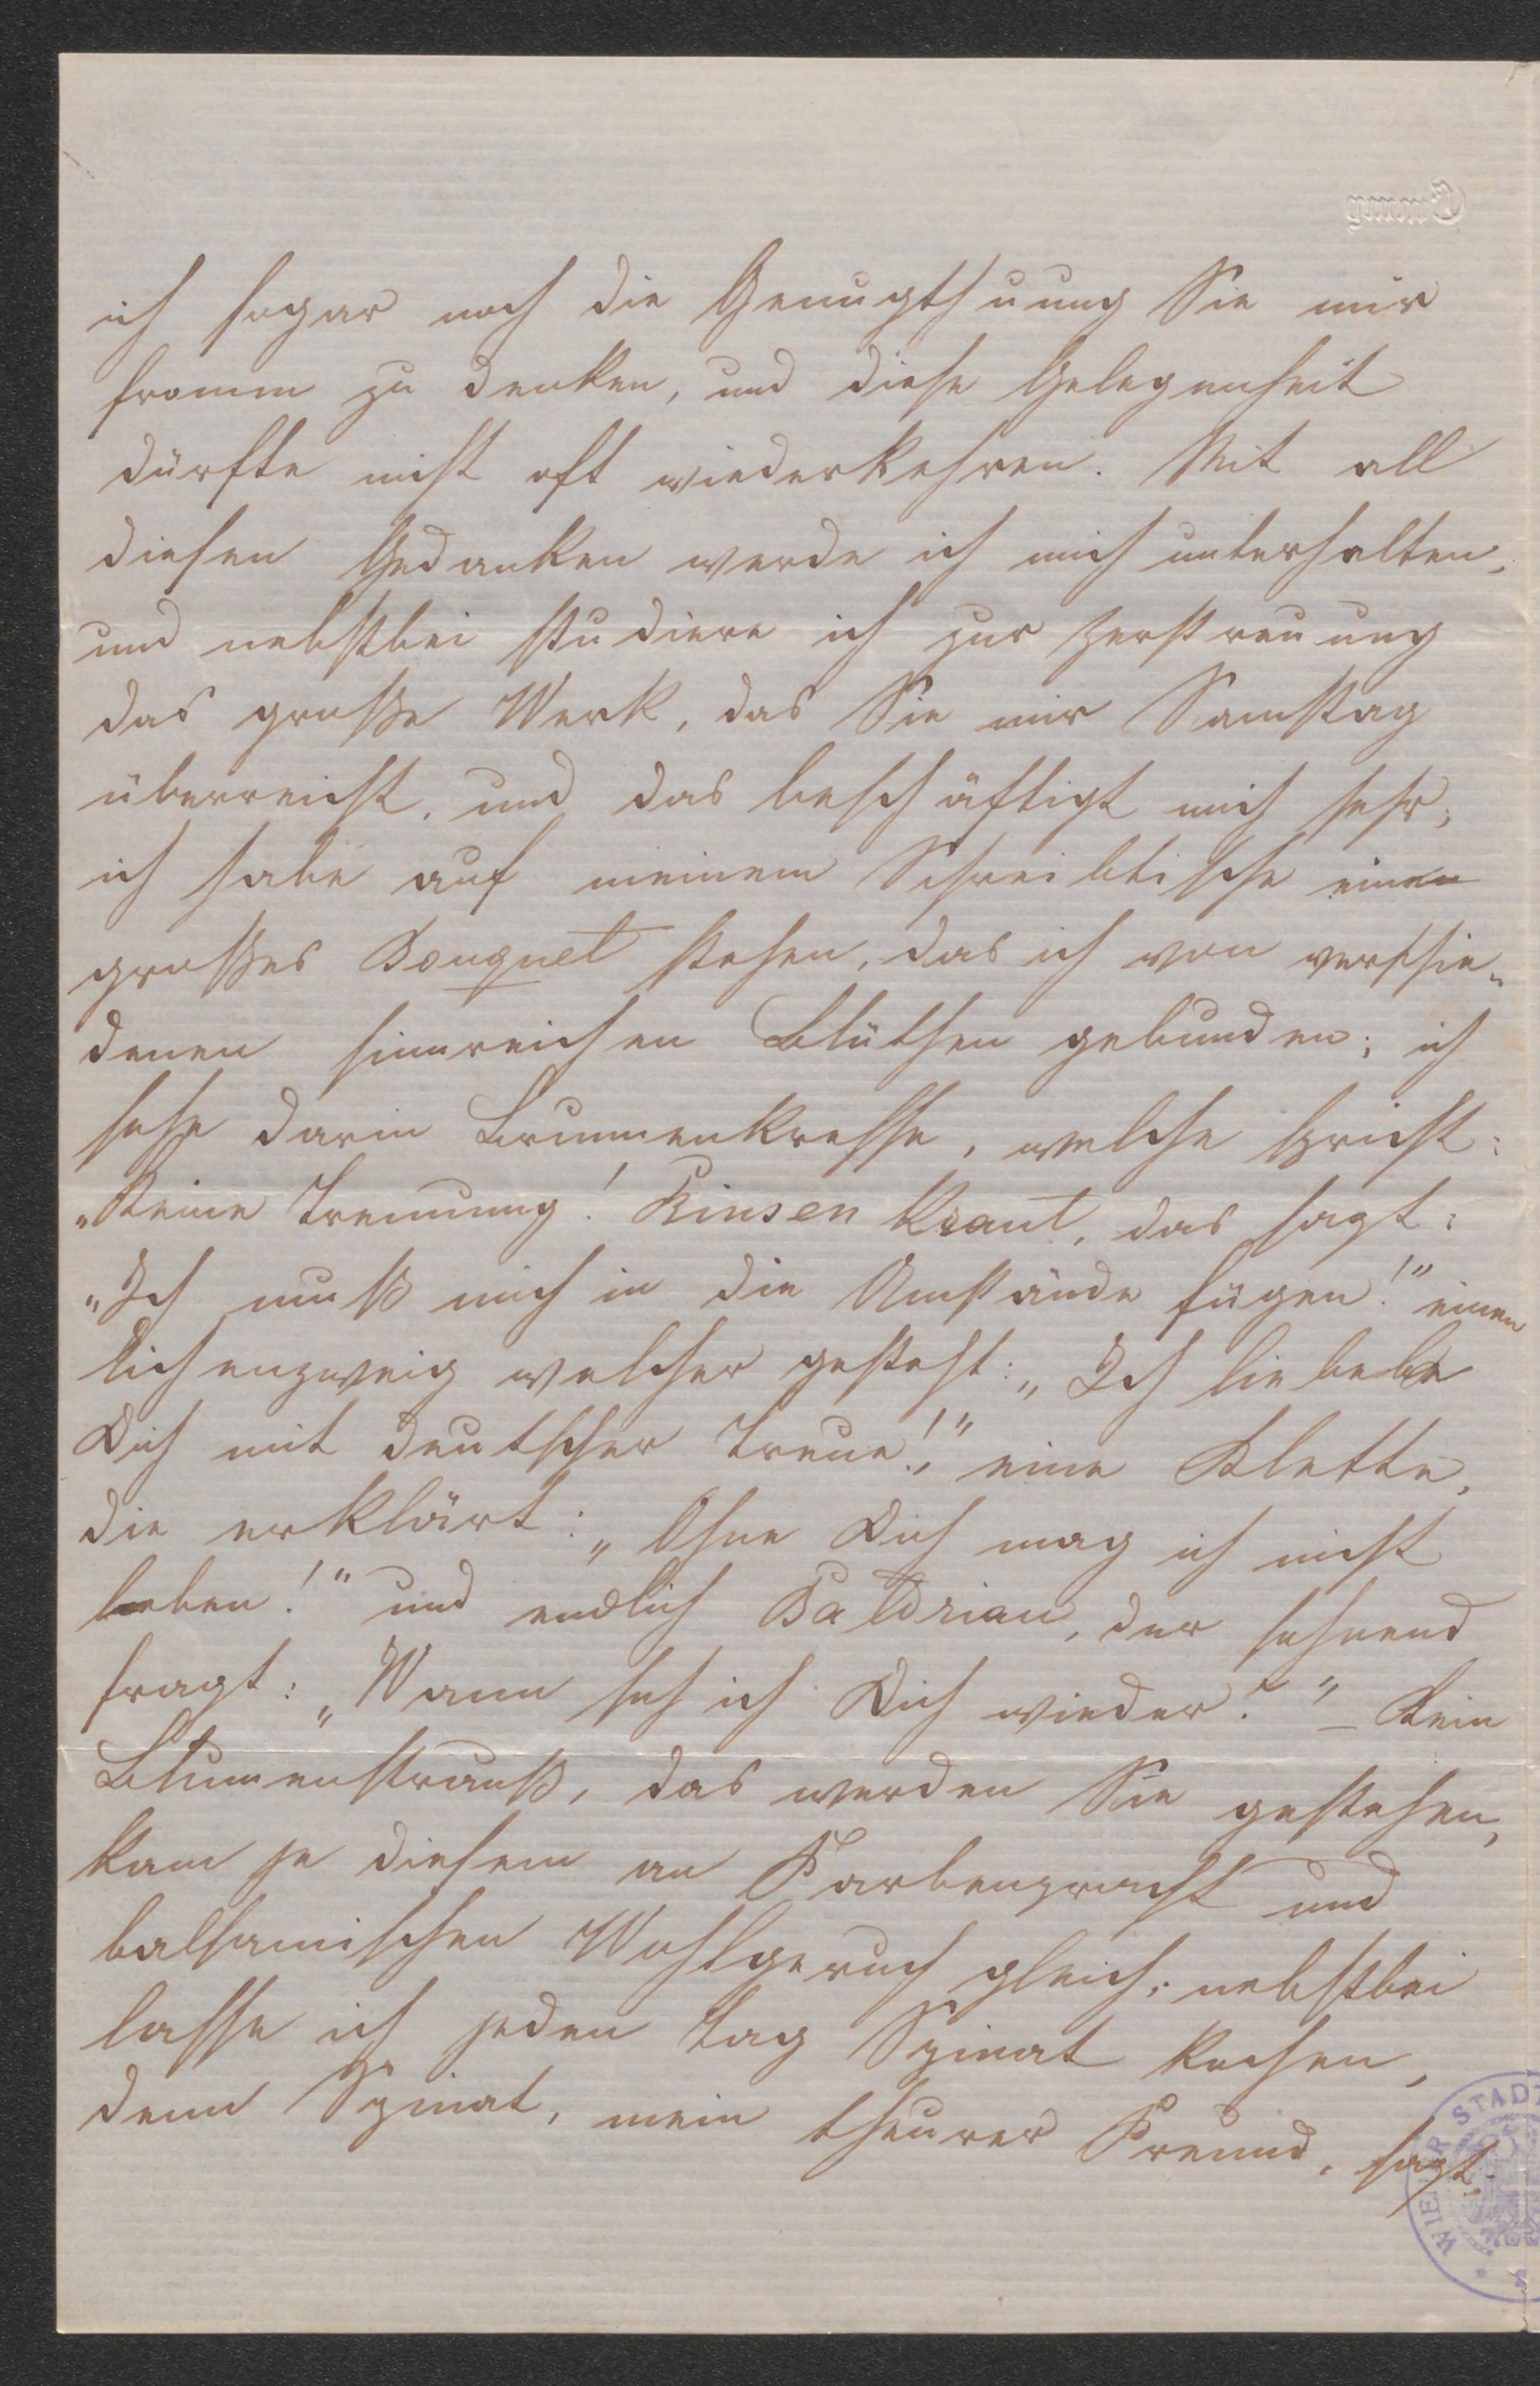 ich sogar noch die Genugthuung Sie mir
fromm zu denken, und diese Gelegenheit
dürfte nicht oft wiederkehren. Mit all
diesen Gedanken werde ich mich unterhalten,
und nebstbei studiere ich zur Zerstreuung
das große Werk, das Sie mir Samstag
überreicht, und das beschäftigt mich sehr;
ich habe auf meinem Schreibtische einen
großes Bouquet stehen, das ich von verschie-
denen sinnreichen Blüthen gebunden; ich
sehe darin Brunnenkresse, welche spricht:
"Keine Trennung! Binsenkraut, das sagt:
"Ich muß mich in die Umstände fügen!" einen
Eichenzweig welcher gesteht: "Ich liebebe
Dich mit deutscher Treue!," eine Klette,
die erklärt: "Ohne Dich mag ich nicht
leben!" und endlich Baldrian, der sehnend
fragt: "Wann seh ich Dich wieder?" – Kein
Blumenstrauß, das werden Sie gestehen,
kam je diesem an Farbenpracht und
balsamischen Wohlgeruch gleich; nebstbei
lasse ich jeden Tag Spinat kochen,
denn Spinat, mein theurer Freund, sagt:
WIENER STADT